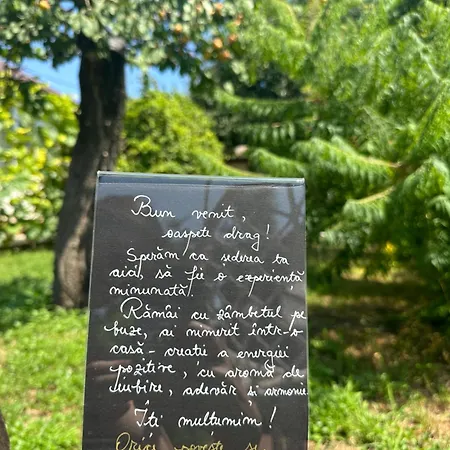 Bun venit,
oaspete drag!
Sperăm ca șederea ta
aici, să fie o experiență
minunată.
Rămâi cu zâmbetul pe
buze, ai nimerit într-o
casă - creație a energiei
pozitive, cu aromă de
iubire, adevăr și armonie
Îți mulțumim!
Orice poveste